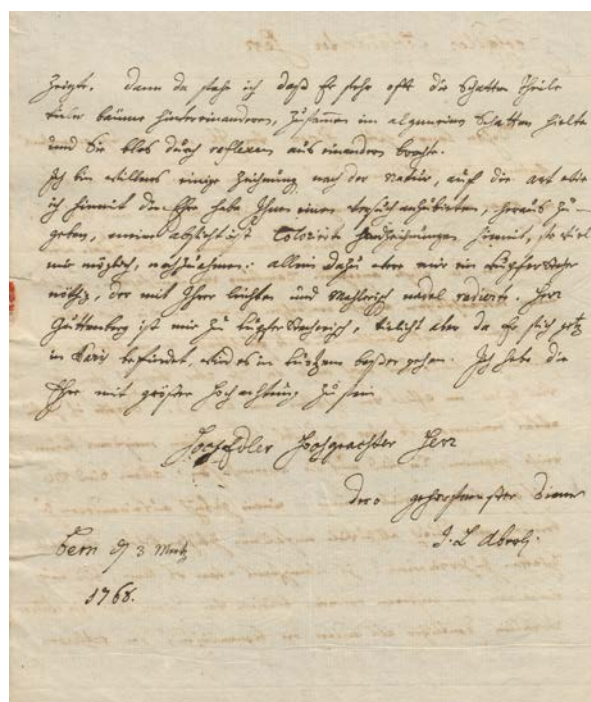 Zeigte. Dann da sahe ich daß Er sehr offt die Schatten Theile
vieler bäume hintereinanderen, zusammen im algemeinen Schatten hielte
und Sie blos durch reflexen aus einanderen brachte.
Ich bin willens einige Zeichnung nach der Natur, auf die art wie
ich hiemit die Ehre habe Ihnen einen versuch anzubieten, heraus zu
geben, meine absicht ist Colorierte Handzeichnungen hiemit, so viel
mir möglich, nachzuahmen: allein dazu were mir ein Kupferstecher
nöthig, der mit Ihrer leichten und Mahlerisch nadel radierte. Herr
Guttenberg ist mir zu kupferstecherisch, vielicht aber da Er sich jetz
in Paris befindet, wird es in kurtzem beßer gehen. Ich habe die
Ehre mit größter Hochachtung zu sein
HochEdler Hochgeachter Herr
dero gehorsamster Diener
J. L. Aberli.
Bern 3 Mertz
1768.